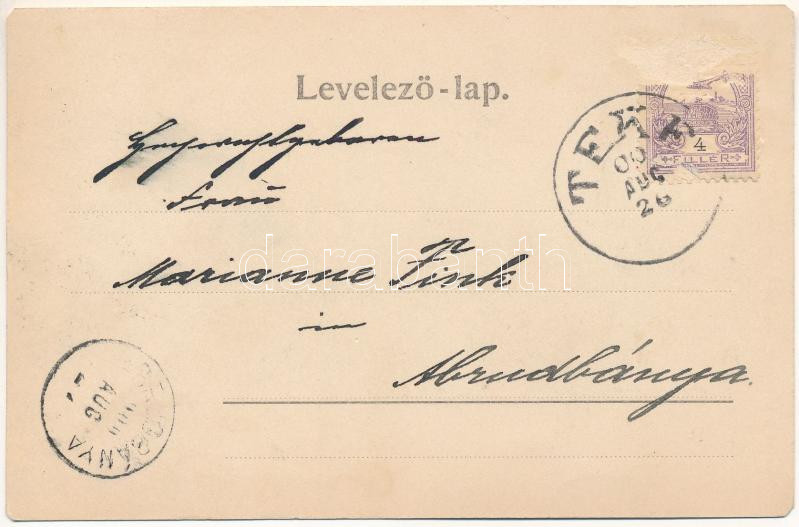 Levelező-lap.
Hochwohlgeboren
Frau
Marianne Fink
in
Abrudbánya.
TEKE
00
AUG
26
4
FILLÉR
BÁNYA
AUG
darabanth